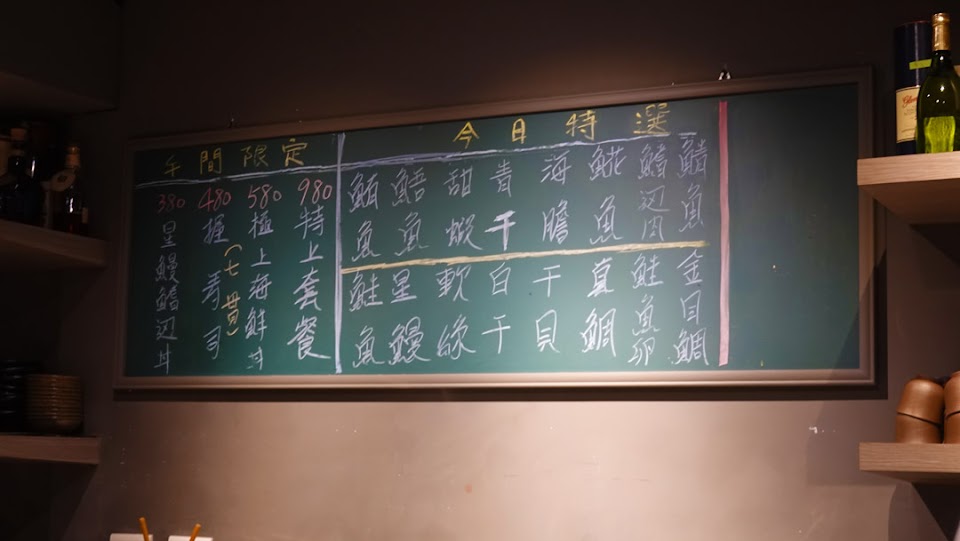 今日特選
鯖魚
鰭辺肉
魚
海膽
青干
甜蝦
魚
鮪魚
金目鯛
鮭魚卵
真鯛
干貝
白干
軟絲
星鰻
鮭魚
午間限定
980 特上套餐
580 極上海鮮丼
480 握寿司(七貫)
380 星鰻鰭辺丼